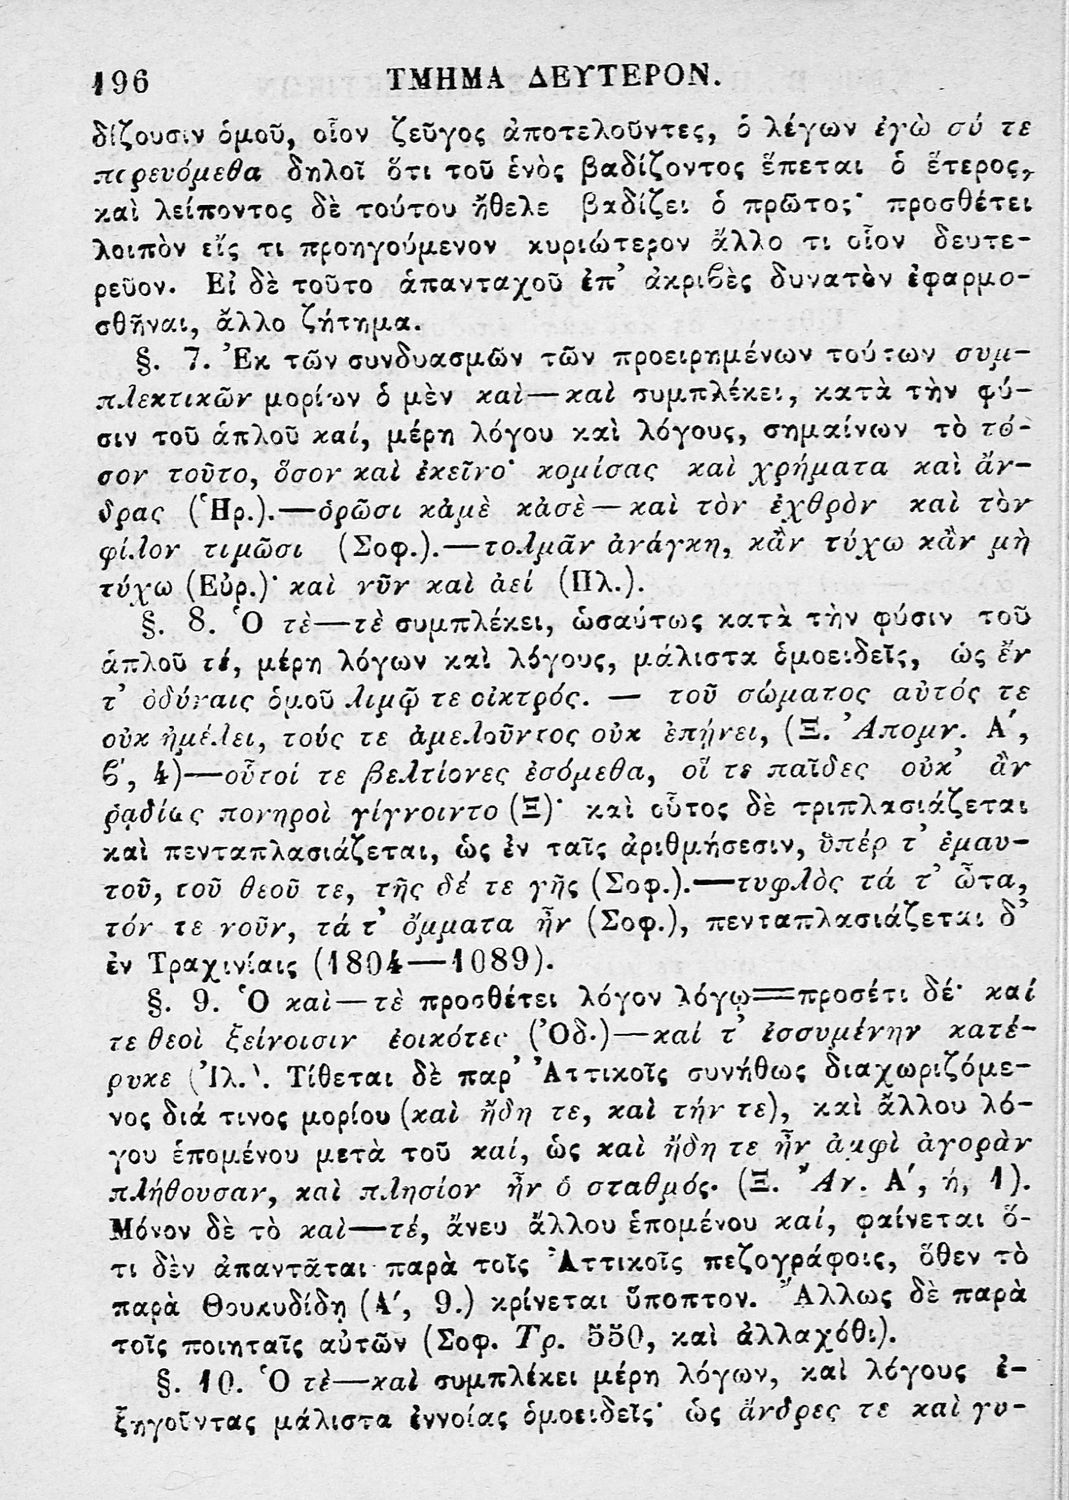 196 ΤΜΗΜΑ ΔΕΥΤΕΡΟΝ.
δίζουσιν ὁμοῦ, οἷον ζεῦγος ἀποτελοῦντες, ὁ λέγων ἐγὼ σύ τε
περευόμεθα δηλοῖ ὅτι τοῦ ἑνὸς βαδίζοντος ἕπεται ὁ ἕτερος,
καὶ λείποντος δὲ τούτου ἤθελε βαδίζει ὁ πρῶτος· προσθέτει
λοιπὸν εἴς τι προηγούμενον κυριώτερον ἄλλο τι οἷον δευτε-
ρεῦον. Εἰ δὲ τοῦτο ἁπανταχοῦ ἐπ' ἀκριβὲς δυνατὸν ἐφαρμο-
σθῆναι, ἄλλο ζήτημα.
§. 7. Ἐκ τῶν συνδυασμῶν τῶν προειρημένων τούτων συμ-
πλεκτικῶν μορίων ὁ μὲν καὶ—καὶ συμπλέκει, κατὰ τὴν φύ-
σιν τοῦ ἁπλοῦ καί, μέρη λόγου καὶ λόγους, σημαίνων τὸ τό-
σον τοῦτο, ὅσον καὶ ἐκεῖνο· κομίσας καὶ χρήματα καὶ ἄν-
δρας (Ἡρ.).—ὁρῶσι κἀμὲ κἀσὲ—καὶ τὸν ἐχθρὸν καὶ τὸν
φίλον τιμῶσι (Σοφ.).—τολμᾶν ἀνάγκη, κἂν τύχω κἂν μὴ
τύχω (Εὐρ.)· καὶ νῦν καὶ ἀεί (Πλ.).
§. 8. Ὁ τὲ—τὲ συμπλέκει, ὡσαύτως κατὰ τὴν φύσιν τοῦ
ἁπλοῦ τέ, μέρη λόγων καὶ λόγους, μάλιστα ὁμοειδεῖς, ὡς ἔν
τ' ὀδύναις ὁμοῦ λιμῷ τε οἰκτρός. — τοῦ σώματος αὐτός τε
οὐκ ἠμέλει, τούς τε ἀμελοῦντος οὐκ ἐπῄνει, (Ξ. Ἀπομν. Α΄,
6΄, 4)—οὗτοί τε βελτίονες ἐσόμεθα, οἵ τε παῖδες οὐκ' ἂν
ῥᾳδίως πονηροὶ γίγνοιντο (Ξ)· καὶ οὗτος δὲ τριπλασιάζεται
καὶ πενταπλασιάζεται, ὡς ἐν ταῖς ἀριθμήσεσιν, ὑπέρ τ' ἐμαυ-
τοῦ, τοῦ θεοῦ τε, τῆς δέ τε γῆς (Σοφ.).—τυφλὸς τά τ' ὦτα,
τόν τε νοῦν, τά τ' ὄμματα ἦν (Σοφ.), πενταπλασιάζεται δ'
ἐν Τραχινίαις (1804—1089).
§. 9. Ὁ καὶ—τὲ προσθέτει λόγον λόγῳ=προσέτι δέ· καί
τε θεοὶ ξείνοισιν ἐοικότες (Ὀδ.)—καί τ' ἐσσυμένην κατέ-
ρυκε (Ἰλ.). Τίθεται δὲ παρ' Ἀττικοῖς συνήθως διαχωριζόμε-
νος διά τινος μορίου (καὶ ἤδη τε, καὶ τήν τε), καὶ ἄλλου λό-
γου ἑπομένου μετὰ τοῦ καί, ὡς καὶ ἤδη τε ἦν ἀμφὶ ἀγορὰν
πλήθουσαν, καὶ πλησίον ἦν ὁ σταθμός· (Ξ. Ἀν. Α΄, ή, 1).
Μόνον δὲ τὸ καὶ—τέ, ἄνευ ἄλλου ἑπομένου καί, φαίνεται ὅ-
τι δὲν ἀπαντᾶται παρὰ τοῖς Ἀττικοῖς πεζογράφοις, ὅθεν τὸ
παρὰ Θουκυδίδῃ (Α΄, 9.) κρίνεται ὕποπτον. Ἄλλως δὲ παρὰ
τοῖς ποιηταῖς αὐτῶν (Σοφ. Τρ. 550, καὶ ἀλλαχόθι).
§. 10. Ὁ τὲ—καὶ συμπλέκει μέρη λόγων, καὶ λόγους ἐ-
ξηγοῦντας μάλιστα ἐννοίας ὁμοειδεῖς· ὡς ἄνδρες τε καὶ γυ-